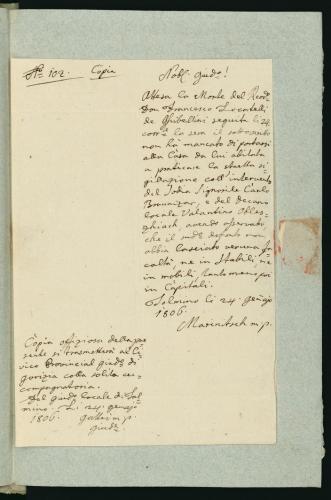 No 102. Copia
Nobl. Giudo!
Attesa la Morte del Revdo
Don Francesco Locatelli
de Ghibellini seguita li 24
corrte la sera il sottoscritto
non hà mancato di portarsi
alla Casa da lui abitata
a praticare la stretta si
gilazione coll'intervento
del Sodia Signorile Carlo
e del Decano
locale Valantino
avendo osservato
che il sudo defonto non
abbia lasciato veruna fa
coltà ne in Stabili ne
in mobili, tanto meno poi
in Capitali.
Tolmino li 24 genajo
1806.
Marintsch m.p.
Copia ofiziosa della pre
sente si trasmetterà al Ci
vico Provincial giudo di
gorizia colla solita ac
compagnatoria.
Dal giudo locale di Tol
mino. Li 24 genajo
1806. m.p.
giudo